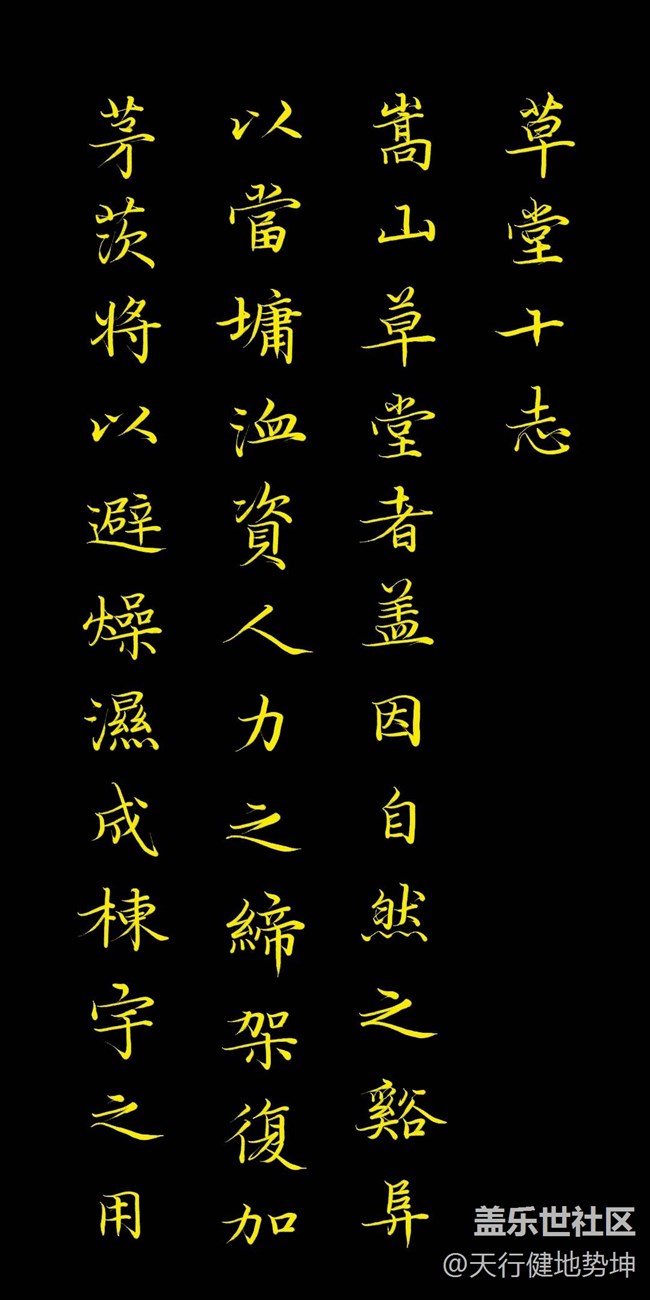 草堂十志
嵩山草堂者盖因自然之谿阜
以當墉洫資人力之締架復加
茅茨将以避燥濕成棟宇之用
盖乐世社区
@天行健地势坤